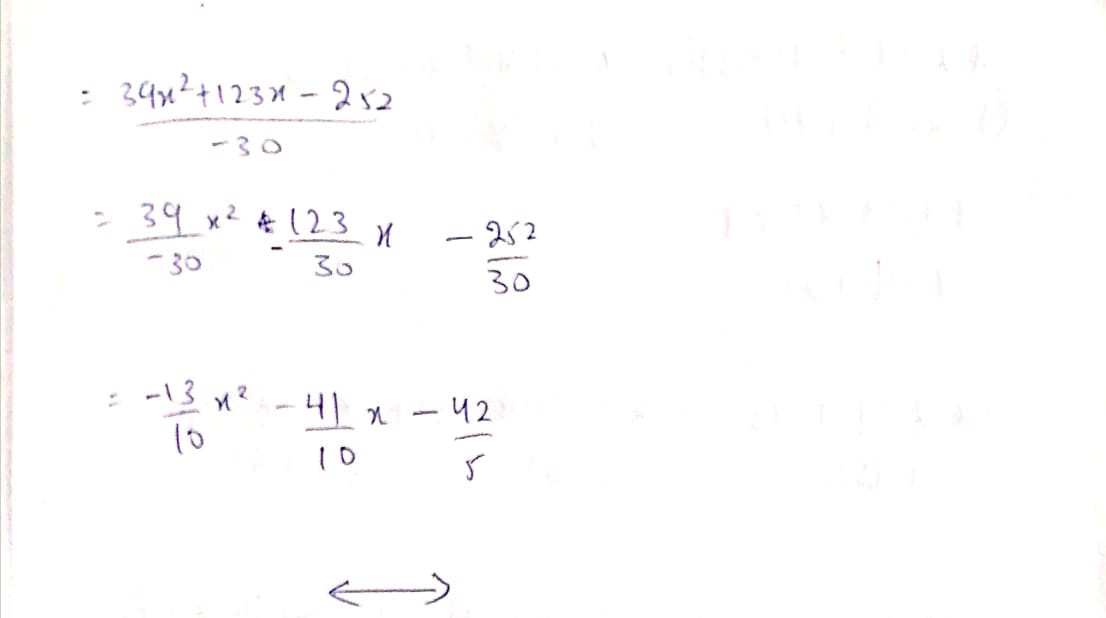 = 39x² + 123x - 252 / -30
= 39/-30 x² - 123/30 x - 252/30
= -13/10 x² - 41/10 x - 42/5